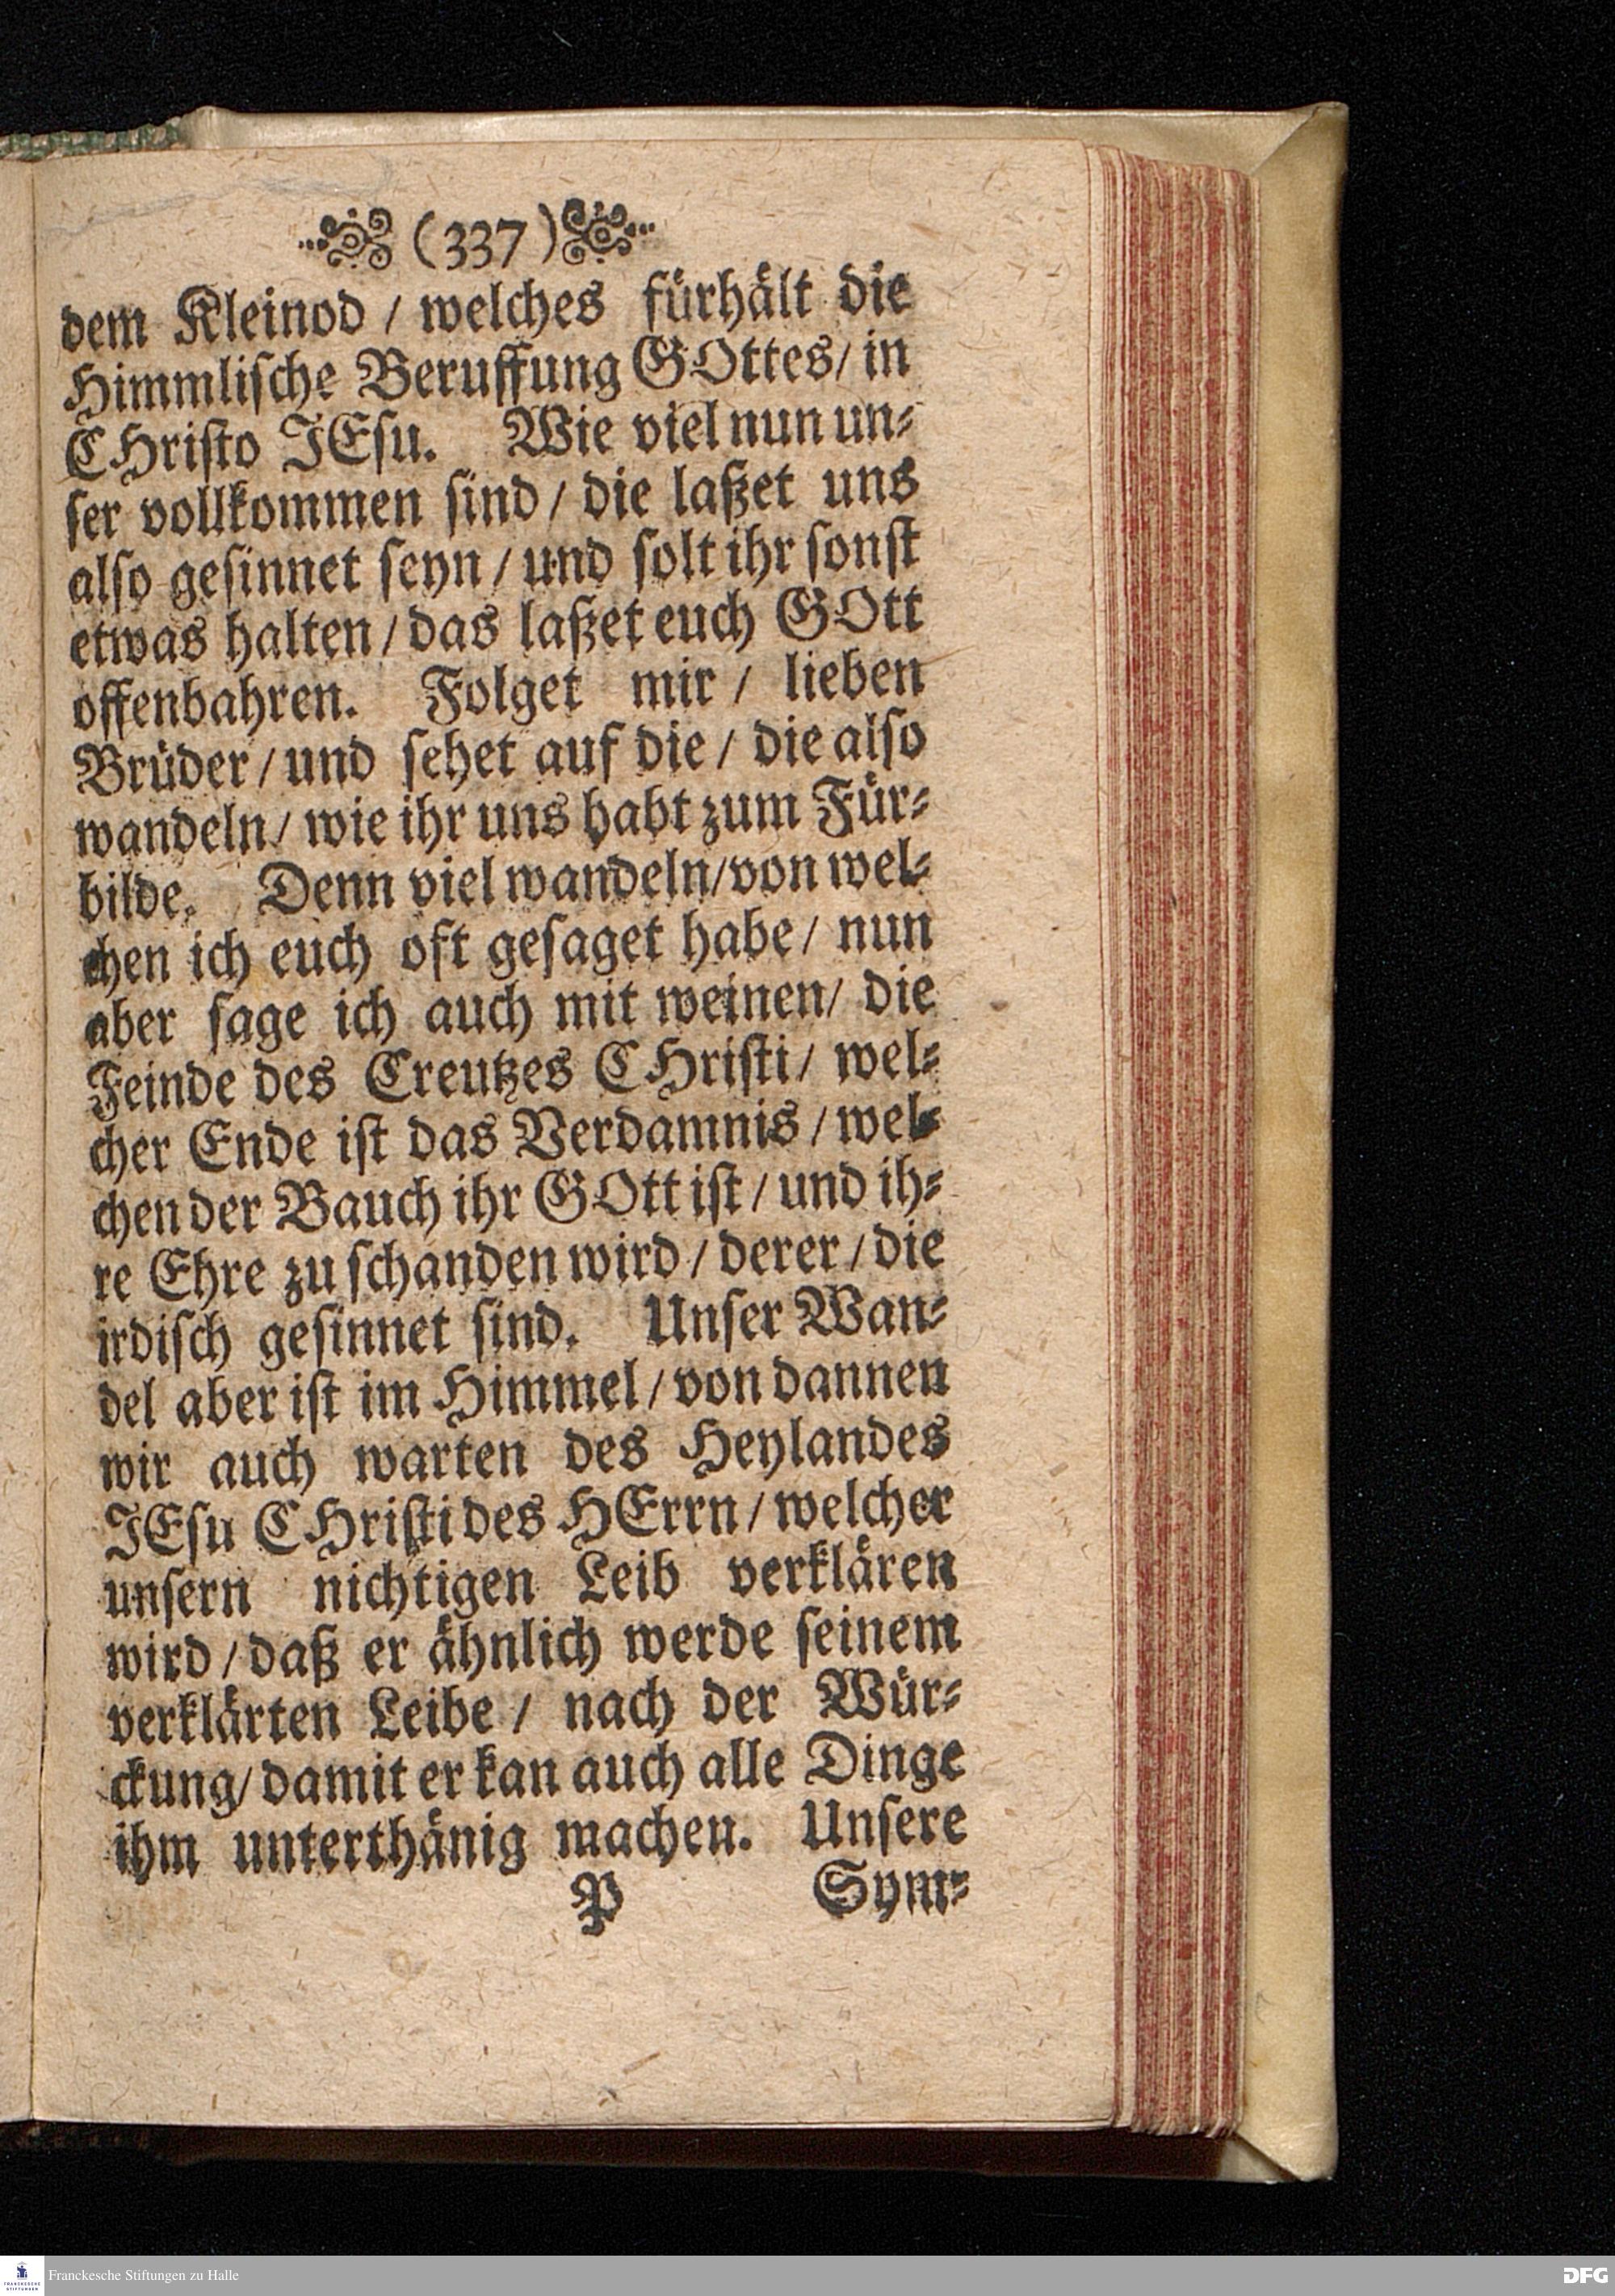 (337)
dem Kleinod / welches fürhält die
Himmlische Beruffung GOttes / in
CHristo JEsu. Wie viel nun un-
ser vollkommen sind / die laßet uns
also gesinnet seyn / und solt ihr sonst
etwas halten / das laßet euch GOtt
offenbahren. Folget mir / lieben
Brüder / und sehet auf die / die also
wandeln / wie ihr uns habt zum Für-
bilde. Denn viel wandeln / von wel-
chen ich euch oft gesaget habe / nun
aber sage ich auch mit weinen / die
Feinde des Creutzes CHristi / wel-
cher Ende ist das Verdamnis / wel-
chen der Bauch ihr GOtt ist / und ih-
re Ehre zu schanden wird / derer / die
irdisch gesinnet sind. Unser Wan-
del aber ist im Himmel / von dannen
wir auch warten des Heylandes
JEsu CHristi des HErrn / welcher
unsern nichtigen Leib verklären
wird / daß er ähnlich werde seinem
verklärten Leibe / nach der Wür-
ckung / damit er kan auch alle Dinge
ihm unterthänig machen. Unsere
P Sym-
FRANCKESCHE STIFTUNGEN
Franckesche Stiftungen zu Halle
DFG